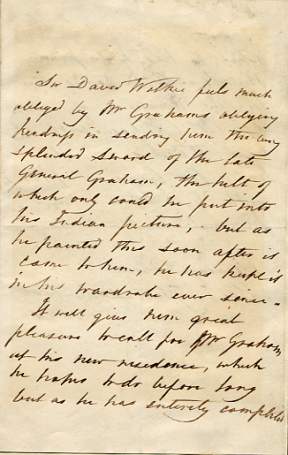 Sir David Wilkie feels much
obliged by Mr Grahams obliging
kindness in sending him the very
splendid Sword of the late
General Graham, the hilt of
which only could be put into
his Indian picture, but as
he painted this soon after it
came to him, he has kept it
in his wardrobe ever since.
It will give him great
pleasure to call for Mr Graham
at his new residence, which
he hopes to do before long
but as he has entirely completed